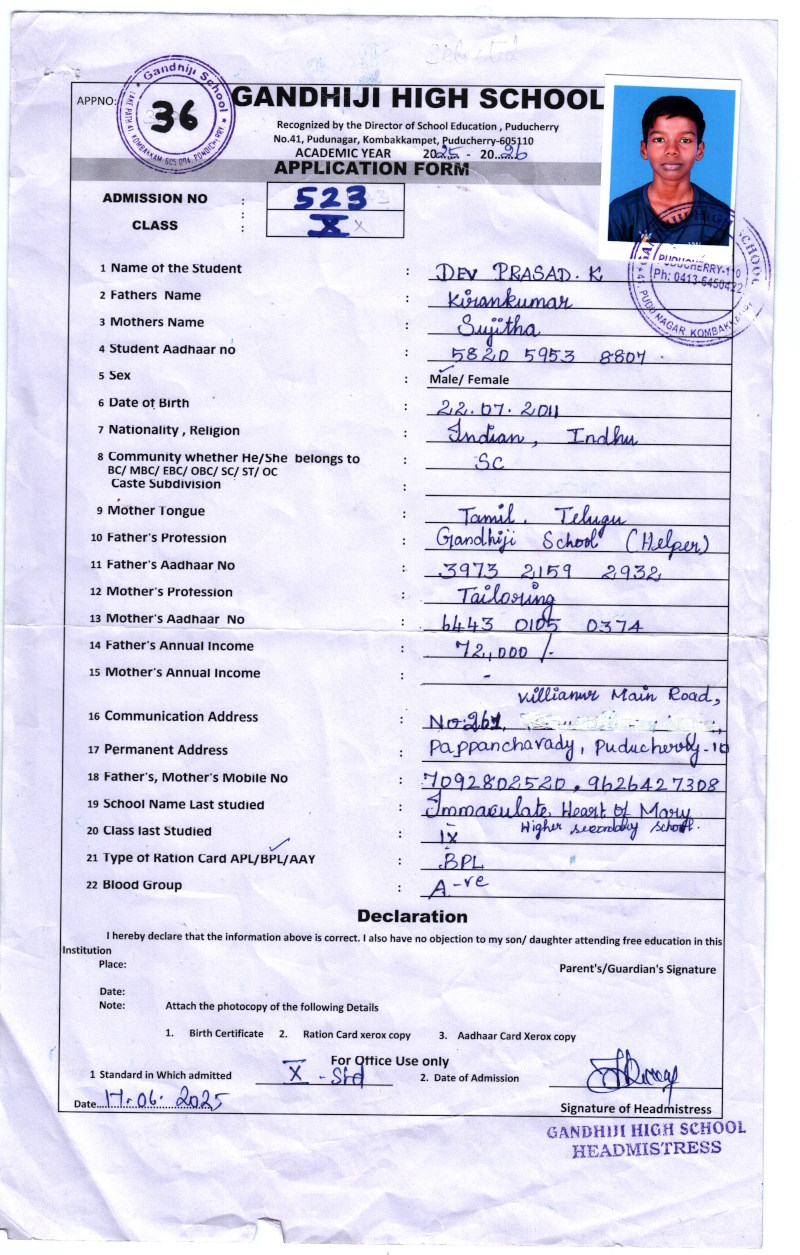 Selected
APPNO:
Gandhiji School
36
LAKE PATH
KOMBAKKAM-605 004, PONDICHERRY
GANDHIJI HIGH SCHOOL
Recognized by the Director of School Education , Puducherry
No.41, Pudunagar, Kombakkampet, Puducherry-605110
ACADEMIC YEAR 2025 - 2026
APPLICATION FORM
ADMISSION NO : 523
CLASS : X X
HIGH SCHOOL
PUDUCHERRY-110
Ph: 0413-6450422
PUDU NAGAR, KOMBAKKAM
1 Name of the Student : DEV PRASAD. K
2 Fathers Name : Kirankumar
3 Mothers Name : Sujitha
4 Student Aadhaar no : 5820 5953 8807
5 Sex : Male/ Female
6 Date of Birth : 22.07.2011
7 Nationality , Religion : Indian, Indhu
8 Community whether He/She belongs to : SC
BC/ MBC/ EBC/ OBC/ SC/ ST/ OC
Caste Subdivision :
9 Mother Tongue : Tamil, Telugu
10 Father's Profession : Gandhiji School (Helper)
11 Father's Aadhaar No : 3973 2159 2932
12 Mother's Profession : Tailoring
13 Mother's Aadhaar No : 6443 0105 0374
14 Father's Annual Income : 72,000/-
15 Mother's Annual Income : -
Villianur Main Road,
16 Communication Address : No:261,
17 Permanent Address : Pappanchavady, Puducherry-10
18 Father's, Mother's Mobile No : 7092802520, 9626427308
19 School Name Last studied : Immaculate Heart of Mary
Higher secondary school.
20 Class last Studied : IX
21 Type of Ration Card APL/BPL/AAY : BPL
22 Blood Group : A-ve
Declaration
I hereby declare that the information above is correct. I also have no objection to my son/ daughter attending free education in this
Institution
Place:
Parent's/Guardian's Signature
Date:
Note: Attach the photocopy of the following Details
1. Birth Certificate 2. Ration Card xerox copy 3. Aadhaar Card Xerox copy
For Office Use only
1 Standard in Which admitted X - Std 2. Date of Admission
Date 17.06.2025
Signature of Headmistress
GANDHIJI HIGH SCHOOL
HEADMISTRESS